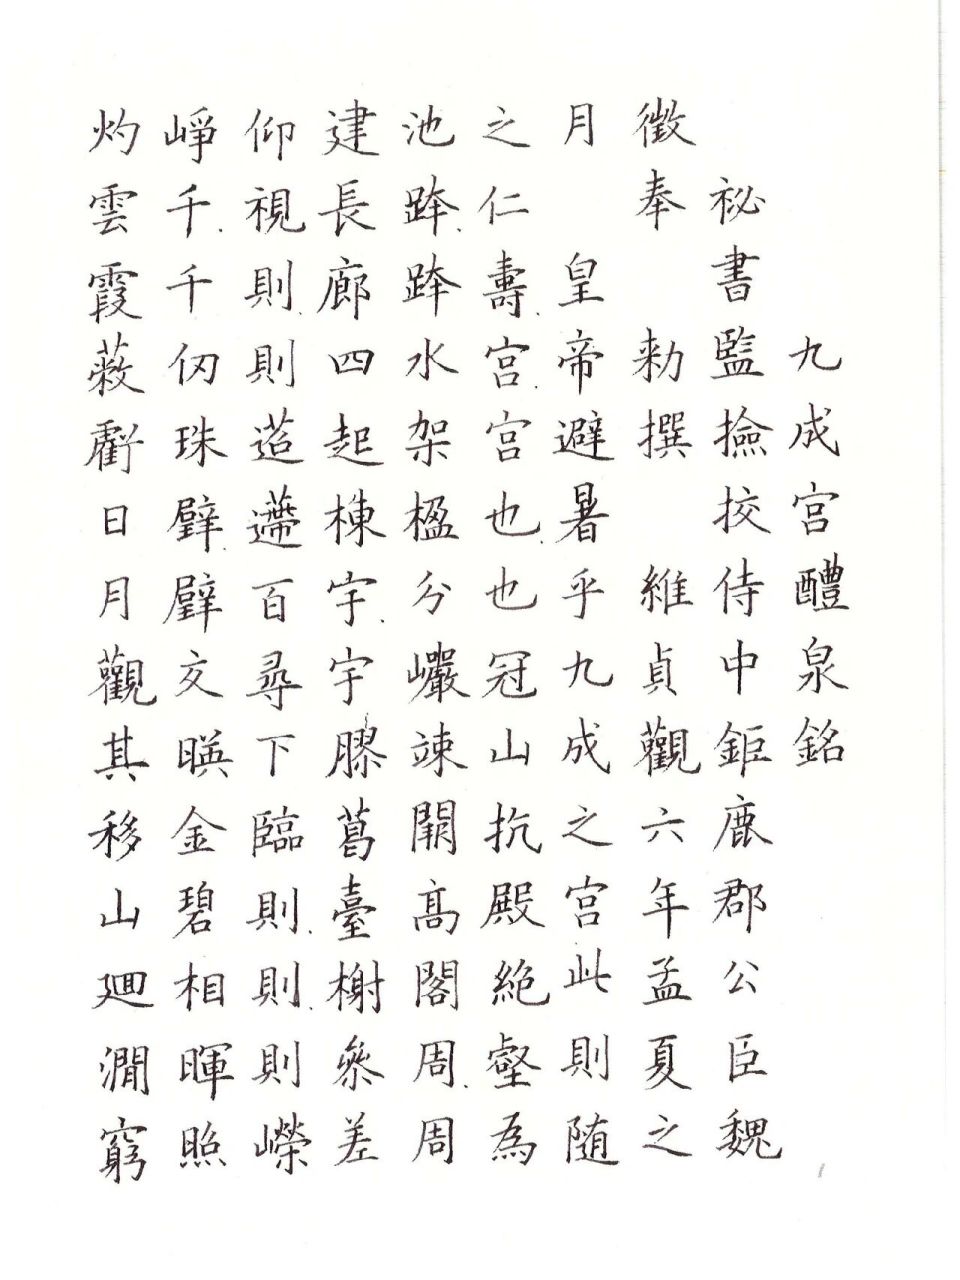 九成宮醴泉銘
祕書監撿挍侍中鉅鹿郡公臣魏
徵奉勑撰維貞觀六年孟夏之
月皇帝避暑乎九成之宮此則随
之仁壽宮宮也也冠山抗殿絶壑為
池跨跨水架楹分巗竦闕高閣周周
建長廊四起棟宇宇膠葛臺榭叅差
仰視則則迢遰百尋下臨則則則嶸
崢千千仞珠璧璧交暎金碧相暉照
灼雲霞蔽虧日月觀其移山迴澗窮
1